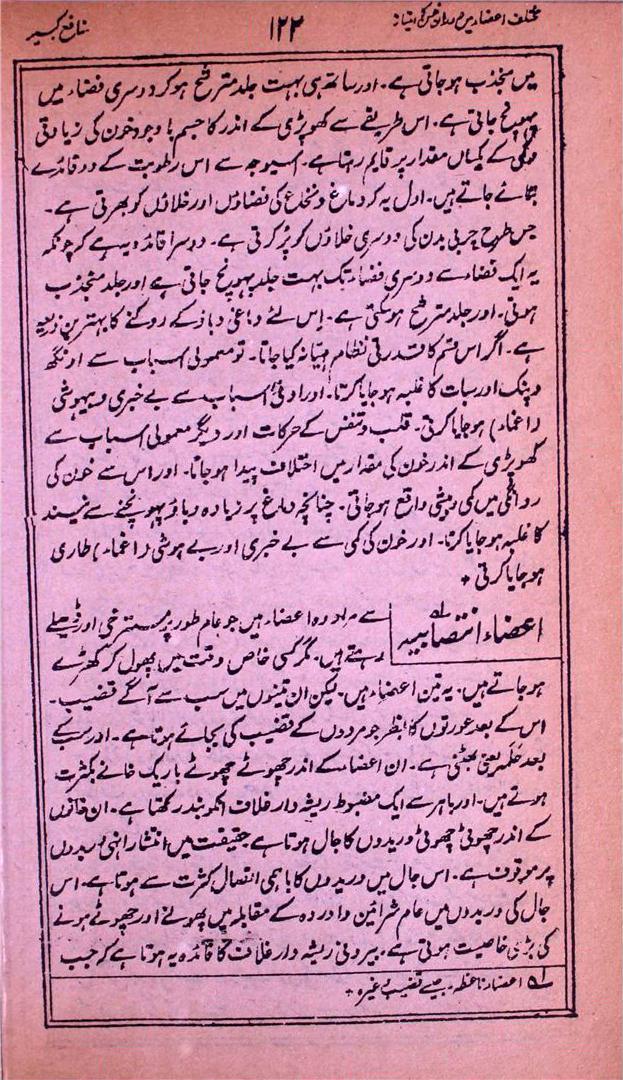 مختلف اعضاء میں دوران خون کی امتیاز
۱۲۲
منافع کبیر
میں منجذب ہوجاتی ہے۔ اور ساتھ ہی بہت جلد مترشح ہوکر دوسری فضاء میں
پہونچ جاتی ہے۔ اس طریقے سے کھوپڑی کے اندر کا جسم باوجود خون کی زیادتی
وکمی کے یکساں مقدار پر قایم رہتا ہے۔ اسیوجہ سے اس رطوبت کے دو فائدے
بتائے جاتے ہیں۔ اول یہ کہ دماغ ونخاع کی فضاؤں اور خلاؤں کو بھرتی ہے۔
جس طرح چربی بدن کی دوسری خلاؤں کو پُر کرتی ہے۔ دوسرا فائدہ یہ ہے کہ چونکہ
یہ ایک فضاء سے دوسری فضاء تک بہت جلد پہونچ جاتی ہے اور جلد منجذب
ہوتی۔ اور جلد مترشح ہوسکتی ہے۔ اس لئے دماغی دباؤ کے روکنے کا بہترین ذریعہ
ہے۔ اگر اس قسم کا قدرتی نظام مہیا نہ کیا جاتا۔ تو معمولی اسباب سے اونگھ
وپنک اور سبات کا غلبہ ہوجایا کرتا۔ اور ادنیٰ اسباب سے بے خبری وبیہوشی
(اغماء) ہوجایا کرتی۔ قلب وتنفس کے حرکات اور دیگر معمولی اسباب سے
کھوپڑی کے اندر خون کی مقدار میں اختلاف پیدا ہوجاتا۔ اور اس سے خون کی
روانگی میں کمی وبیشی واقع ہوجاتی۔ چنانچہ دماغ پر زیادہ دباؤ پہونچنے سے نیند
کا غلبہ ہوجایا کرتا۔ اور خون کی کمی سے بے خبری اور بے ہوشی (اغماء) طاری
ہوجایا کرتی +
اعضاء انتصابیہ لہ سے مراد وہ اعضاء ہیں جو عام طور پر مسترخی اور ڈھیلے
رہتے ہیں۔ مگر کسی خاص وقت میں پھول کر کھڑے
ہوجاتے ہیں۔ یہ تین اعضاء ہیں۔ لیکن ان تینوں میں سب سے آگے قضیب۔
اس کے بعد عورتوں کا بظر جو مردوں کے قضیب کی بجائے ہوتا ہے۔ اور سب کے
بعد حلمہ یعنی بھٹنی ہے۔ ان اعضاء کے اندر چھوٹے چھوٹے باریک خانے بکثرت
ہوتے ہیں۔ اور باہر سے ایک مضبوط ریشہ دار غلاف انکو بند رکھتا ہے۔ ان خانوں
کے اندر چھوٹی چھوٹی وریدوں کا جال ہوتا ہے حقیقت میں انتشار انہی وریدوں
پر موقوف ہے۔ اس جال میں وریدوں کا باہمی اتصال کثرت سے ہوتا ہے۔ اس
جال کی وریدوں میں عام شرائین واوردہ کے مقابلہ میں پھولنے اور چھوٹے ہونے
کی بڑی خاصیت ہوتی ہے۔ بیرونی ریشہ دار غلاف کا فائدہ یہ ہوتا ہے کہ جب
لہ اعضاء ناعظہ۔ جیسے قضیب وغیرہ +